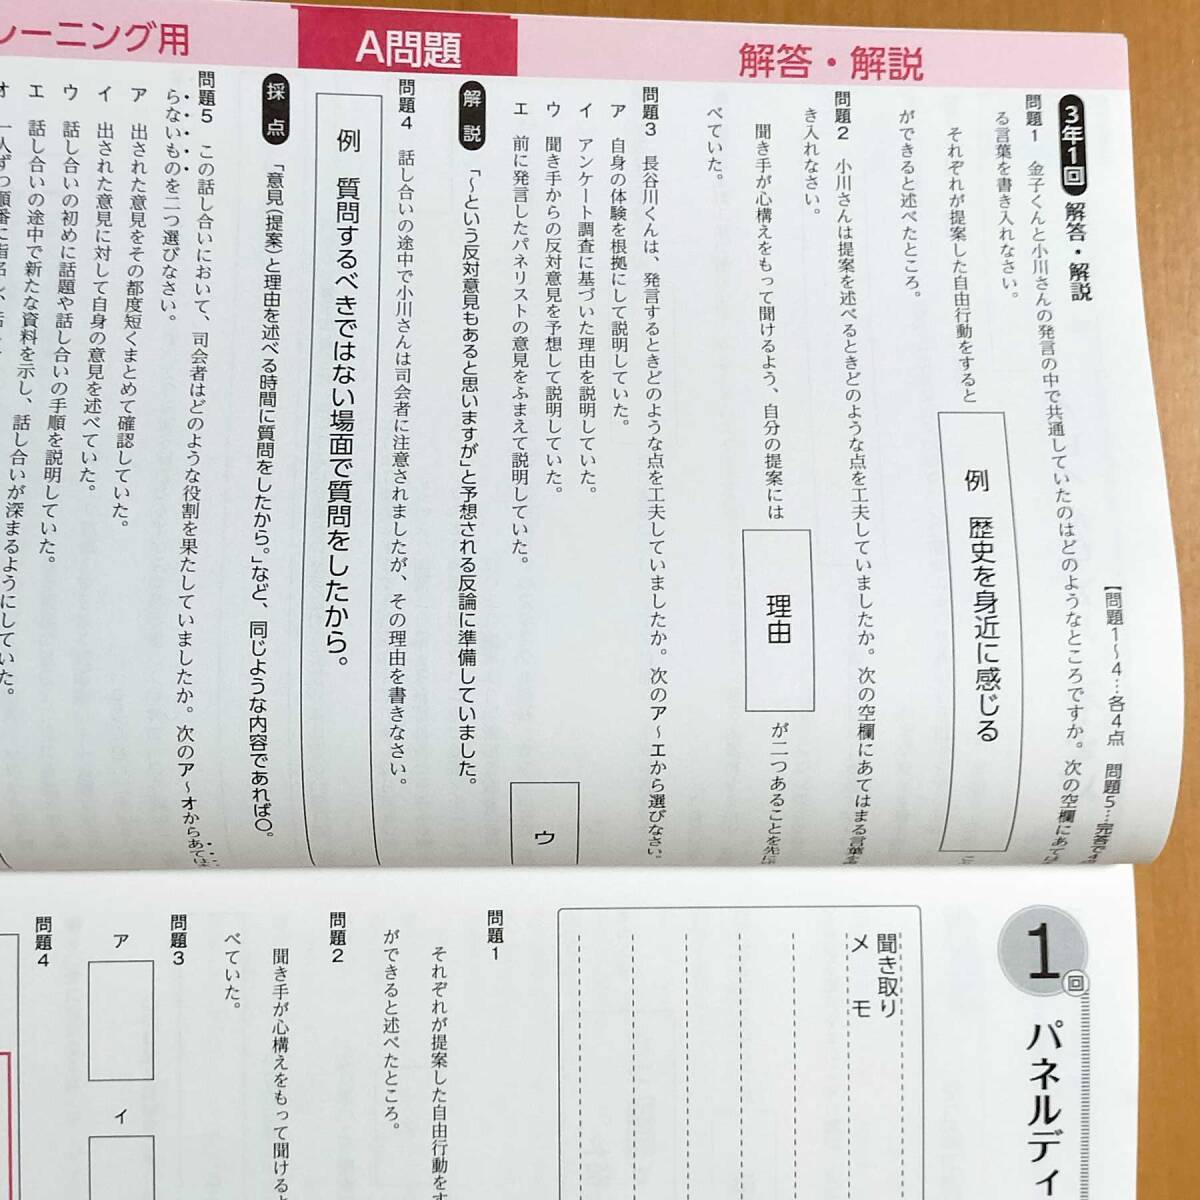 レーニング用
A問題
解答・解説
3年1回 解答・解説
【問題1～4…各4点 問題5…完答で4
問題1 金子くんと小川さんの発言の中で共通していたのはどのようなところですか。次の空欄にあては
る言葉を書き入れなさい。
それぞれが提案した自由行動をすると
例 歴史を身近に感じる
こ
ができると述べたところ。
問題2 小川さんは提案を述べるときどのような点を工夫していましたか。次の空欄にあてはまる言葉を
き入れなさい。
聞き手が心構えをもって聞けるよう、自分の提案には
理由
が二つあることを先に
べていた。
問題3 長谷川くんは、発言するときどのような点を工夫していましたか。次のア～エから選びなさい。
ア 自身の体験を根拠にして説明していた。
イ アンケート調査に基づいた理由を説明していた。
ウ 聞き手からの反対意見を予想して説明していた。
エ 前に発言したパネリストの意見をふまえて説明していた。
ウ
解説 「～という反対意見もあると思いますが」と予想される反論に準備していました。
問題4 話し合いの途中で小川さんは司会者に注意されましたが、その理由を書きなさい。
例 質問するべきではない場面で質問をしたから。
採点 「意見(提案)と理由を述べる時間に質問をしたから。」など、同じような内容であれば○。
問題5 この話し合いにおいて、司会者はどのような役割を果たしていましたか。次のア～オからあては
らないものを二つ選びなさい。
ア 出された意見をその都度短くまとめて確認していた。
イ 出された意見に対して自身の意見を述べていた。
ウ 話し合いの初めに話題や話し合いの手順を説明していた。
エ 話し合いの途中で新たな資料を示し、話し合いが深まるようにしていた。
オ 一人ずつ順番に指名し、
1回 パネルディ
聞き取り
メモ
問題1
それぞれが提案した自由行動をす
ができると述べたところ。
問題2
聞き手が心構えをもって聞けるよ
べていた。
問題3
ア
イ
問題4